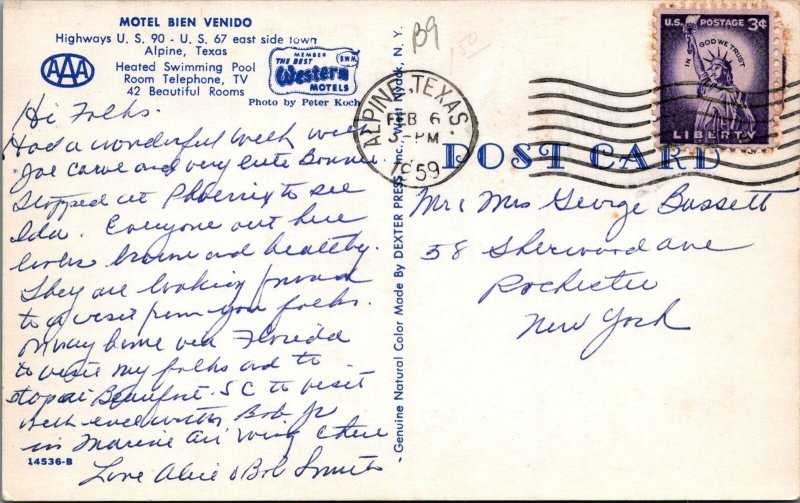 MOTEL BIEN VENIDO
Highways U. S. 90 - U. S. 67 east side town
Alpine, Texas
AAA
Heated Swimming Pool
Room Telephone, TV
42 Beautiful Rooms
MEMBER
THE BEST B.W.M.
Western
MOTELS
Photo by Peter Koch
Hi Folks.
Had a wonderful week with
Joe Carol and very cute Bonnie
Stopped at Phoenix to see
Ida. Everyone out here
looks brown and healthy.
They are looking forward
to a visit from you folks.
On way home via Florida
to visit my folks and to
stop at Beaufort. SC to visit
with Bob Jr
in Marine Air Wing there
Love Alice & Bob
14536-B
Genuine Natural Color Made By DEXTER PRESS, Inc., West Nyack, N. Y.
B9
1.50
ALPINE, TEXAS.
FEB 6
3-PM
1959
U.S. POSTAGE 3¢
IN GOD WE TRUST
LIBERTY
POST CARD
Mr & Mrs George Bassett
58 Sherwood Ave
Rochester
New York